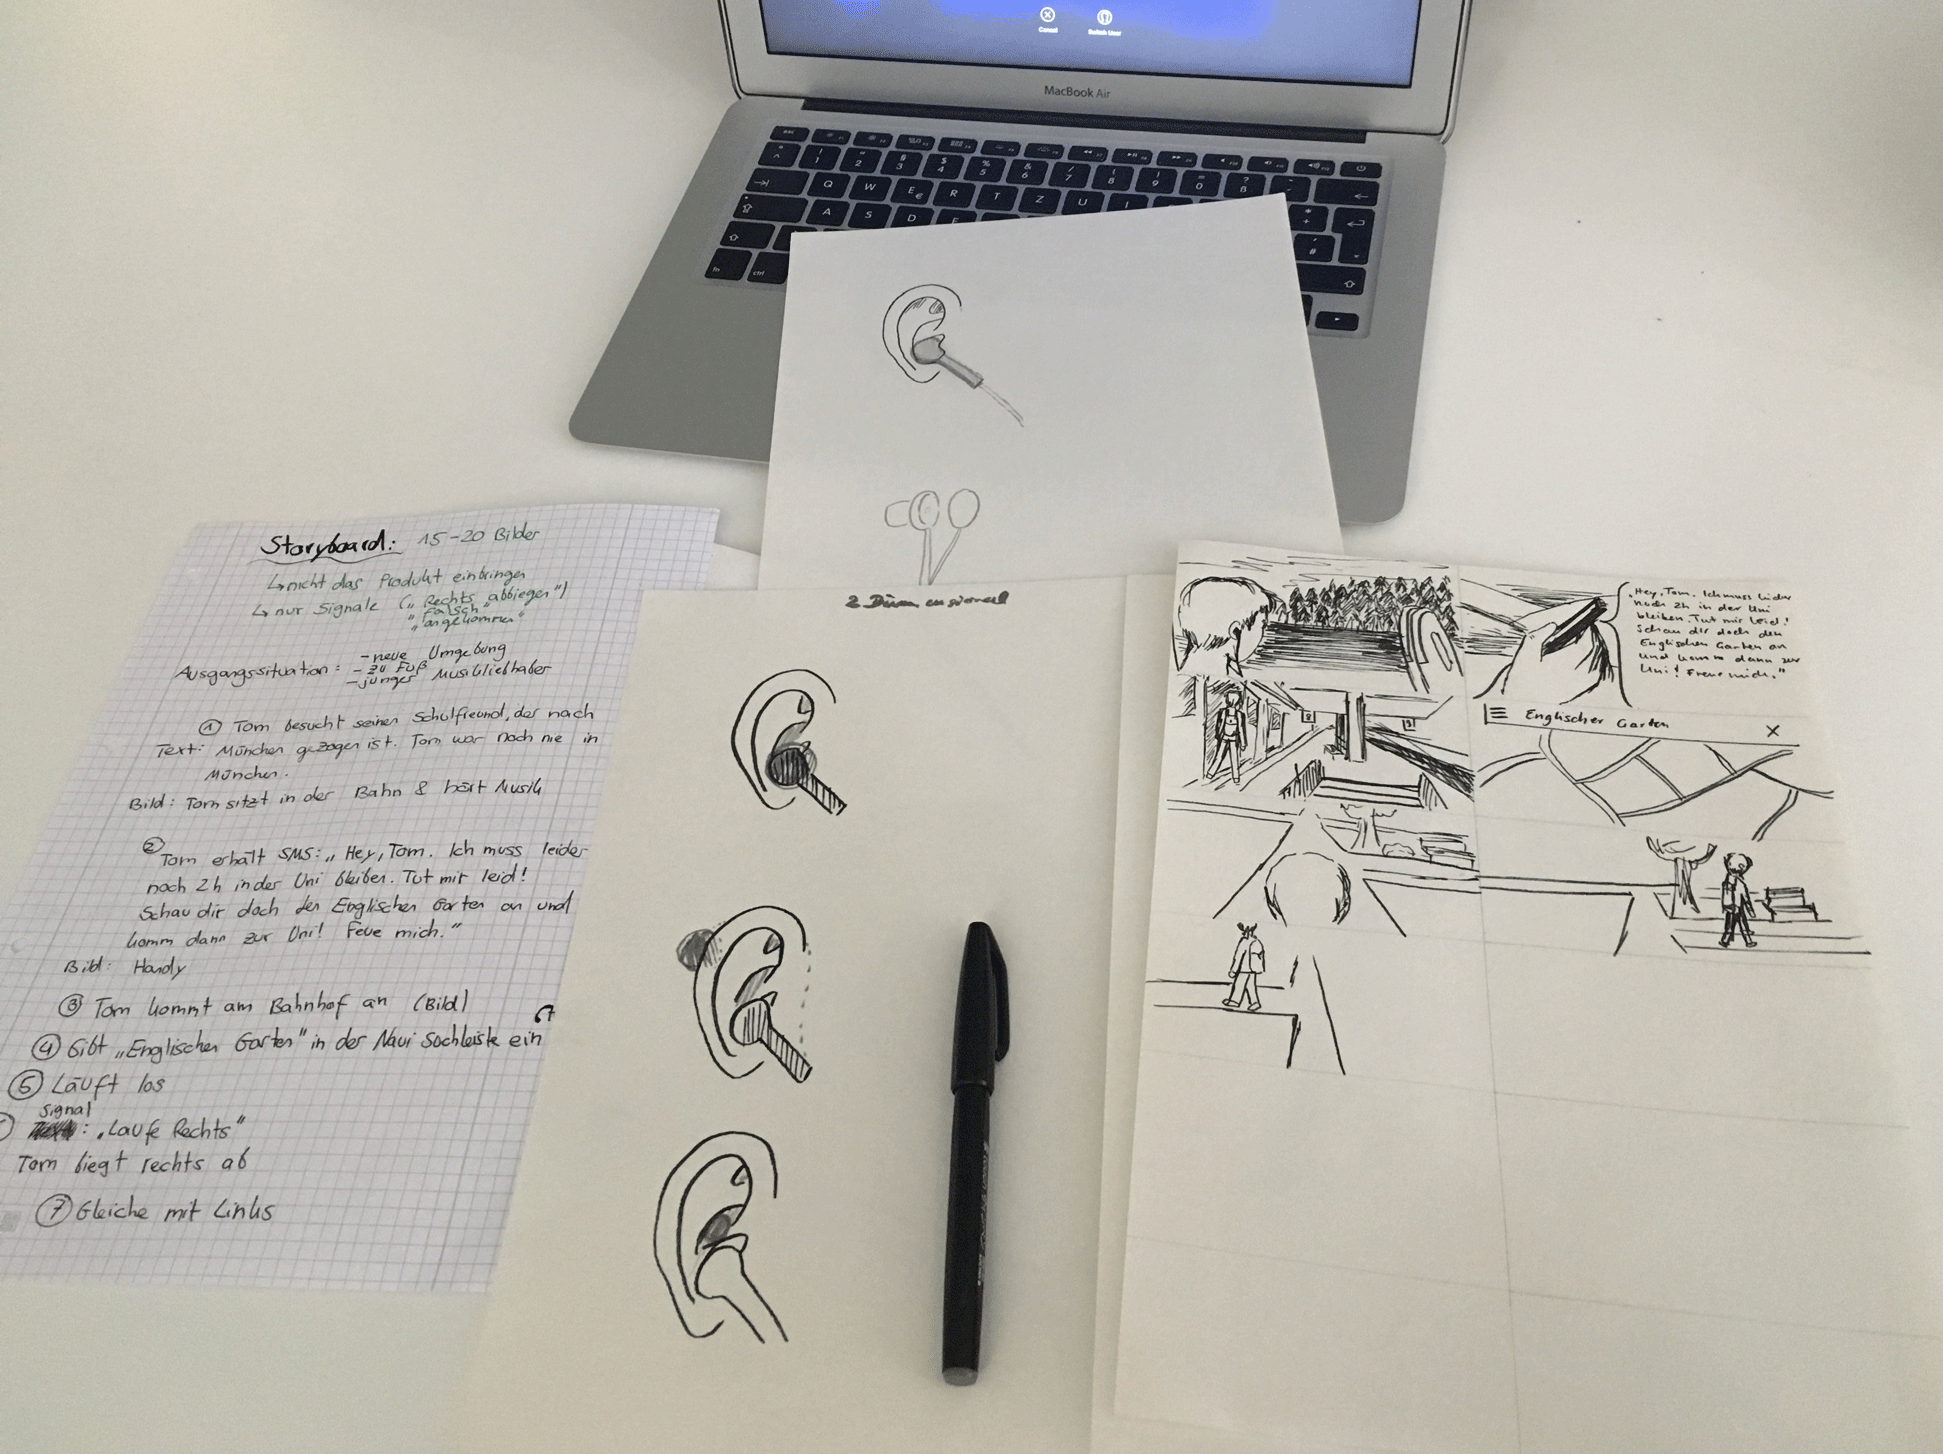 Cancel
Switch User
MacBook Air
Q W E R T Z U
A S D F
fn ctrl
Storyboard: 15-20 Bilder
↳ nicht das Produkt einbringen
↳ nur Signale („Rechts abbiegen")
„falsch"
„angekommen"
Ausgangssituation: - neue Umgebung
- zu Fuß
- junger Musikliebhaber
① Tom besucht seinen Schulfreund, der nach
Text: München gezogen ist. Tom war noch nie in
München.
Bild: Tom sitzt in der Bahn & hört Musik
② Tom erhält SMS: „Hey, Tom. Ich muss leider
noch 2h in der Uni bleiben. Tut mir leid!
Schau dir doch den Englischen Garten an und
komm dann zur Uni! Feue mich."
Bild: Handy
③ Tom kommt am Bahnhof an (Bild)
④ Gibt „Englischer Garten" in der Navi Suchleiste ein
⑤ Läuft los
Signal
: „Laufe Rechts"
Tom biegt rechts ab
⑦ Gleiche mit Links
„Hey, Tom. Ich muss leider
noch 2h in der Uni
bleiben. Tut mir leid!
Schau dir doch den
Englischen Garten an
und komm dann zur
Uni! Freue mich."
Englischer Garten X